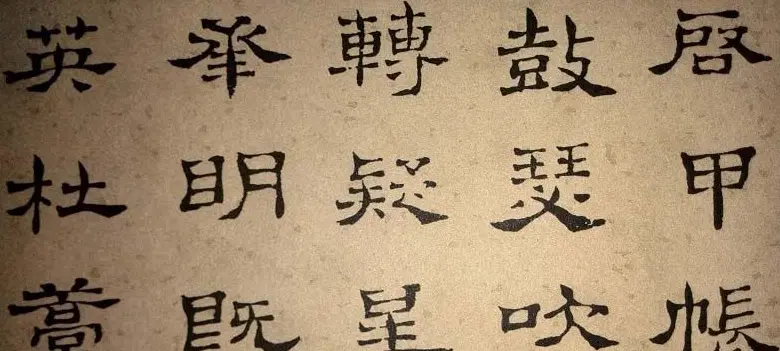 啓甲帳
鼓瑟吹
轉疑星
承明既
英杜稾